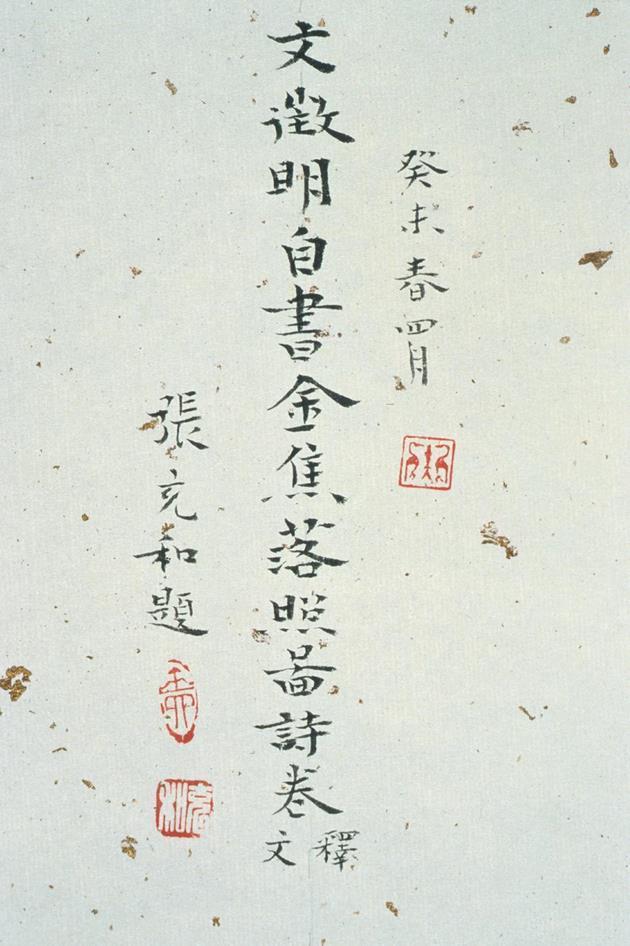 癸未春四月
文徵明自書金焦落照啚詩卷
釋文
張充和題
充和